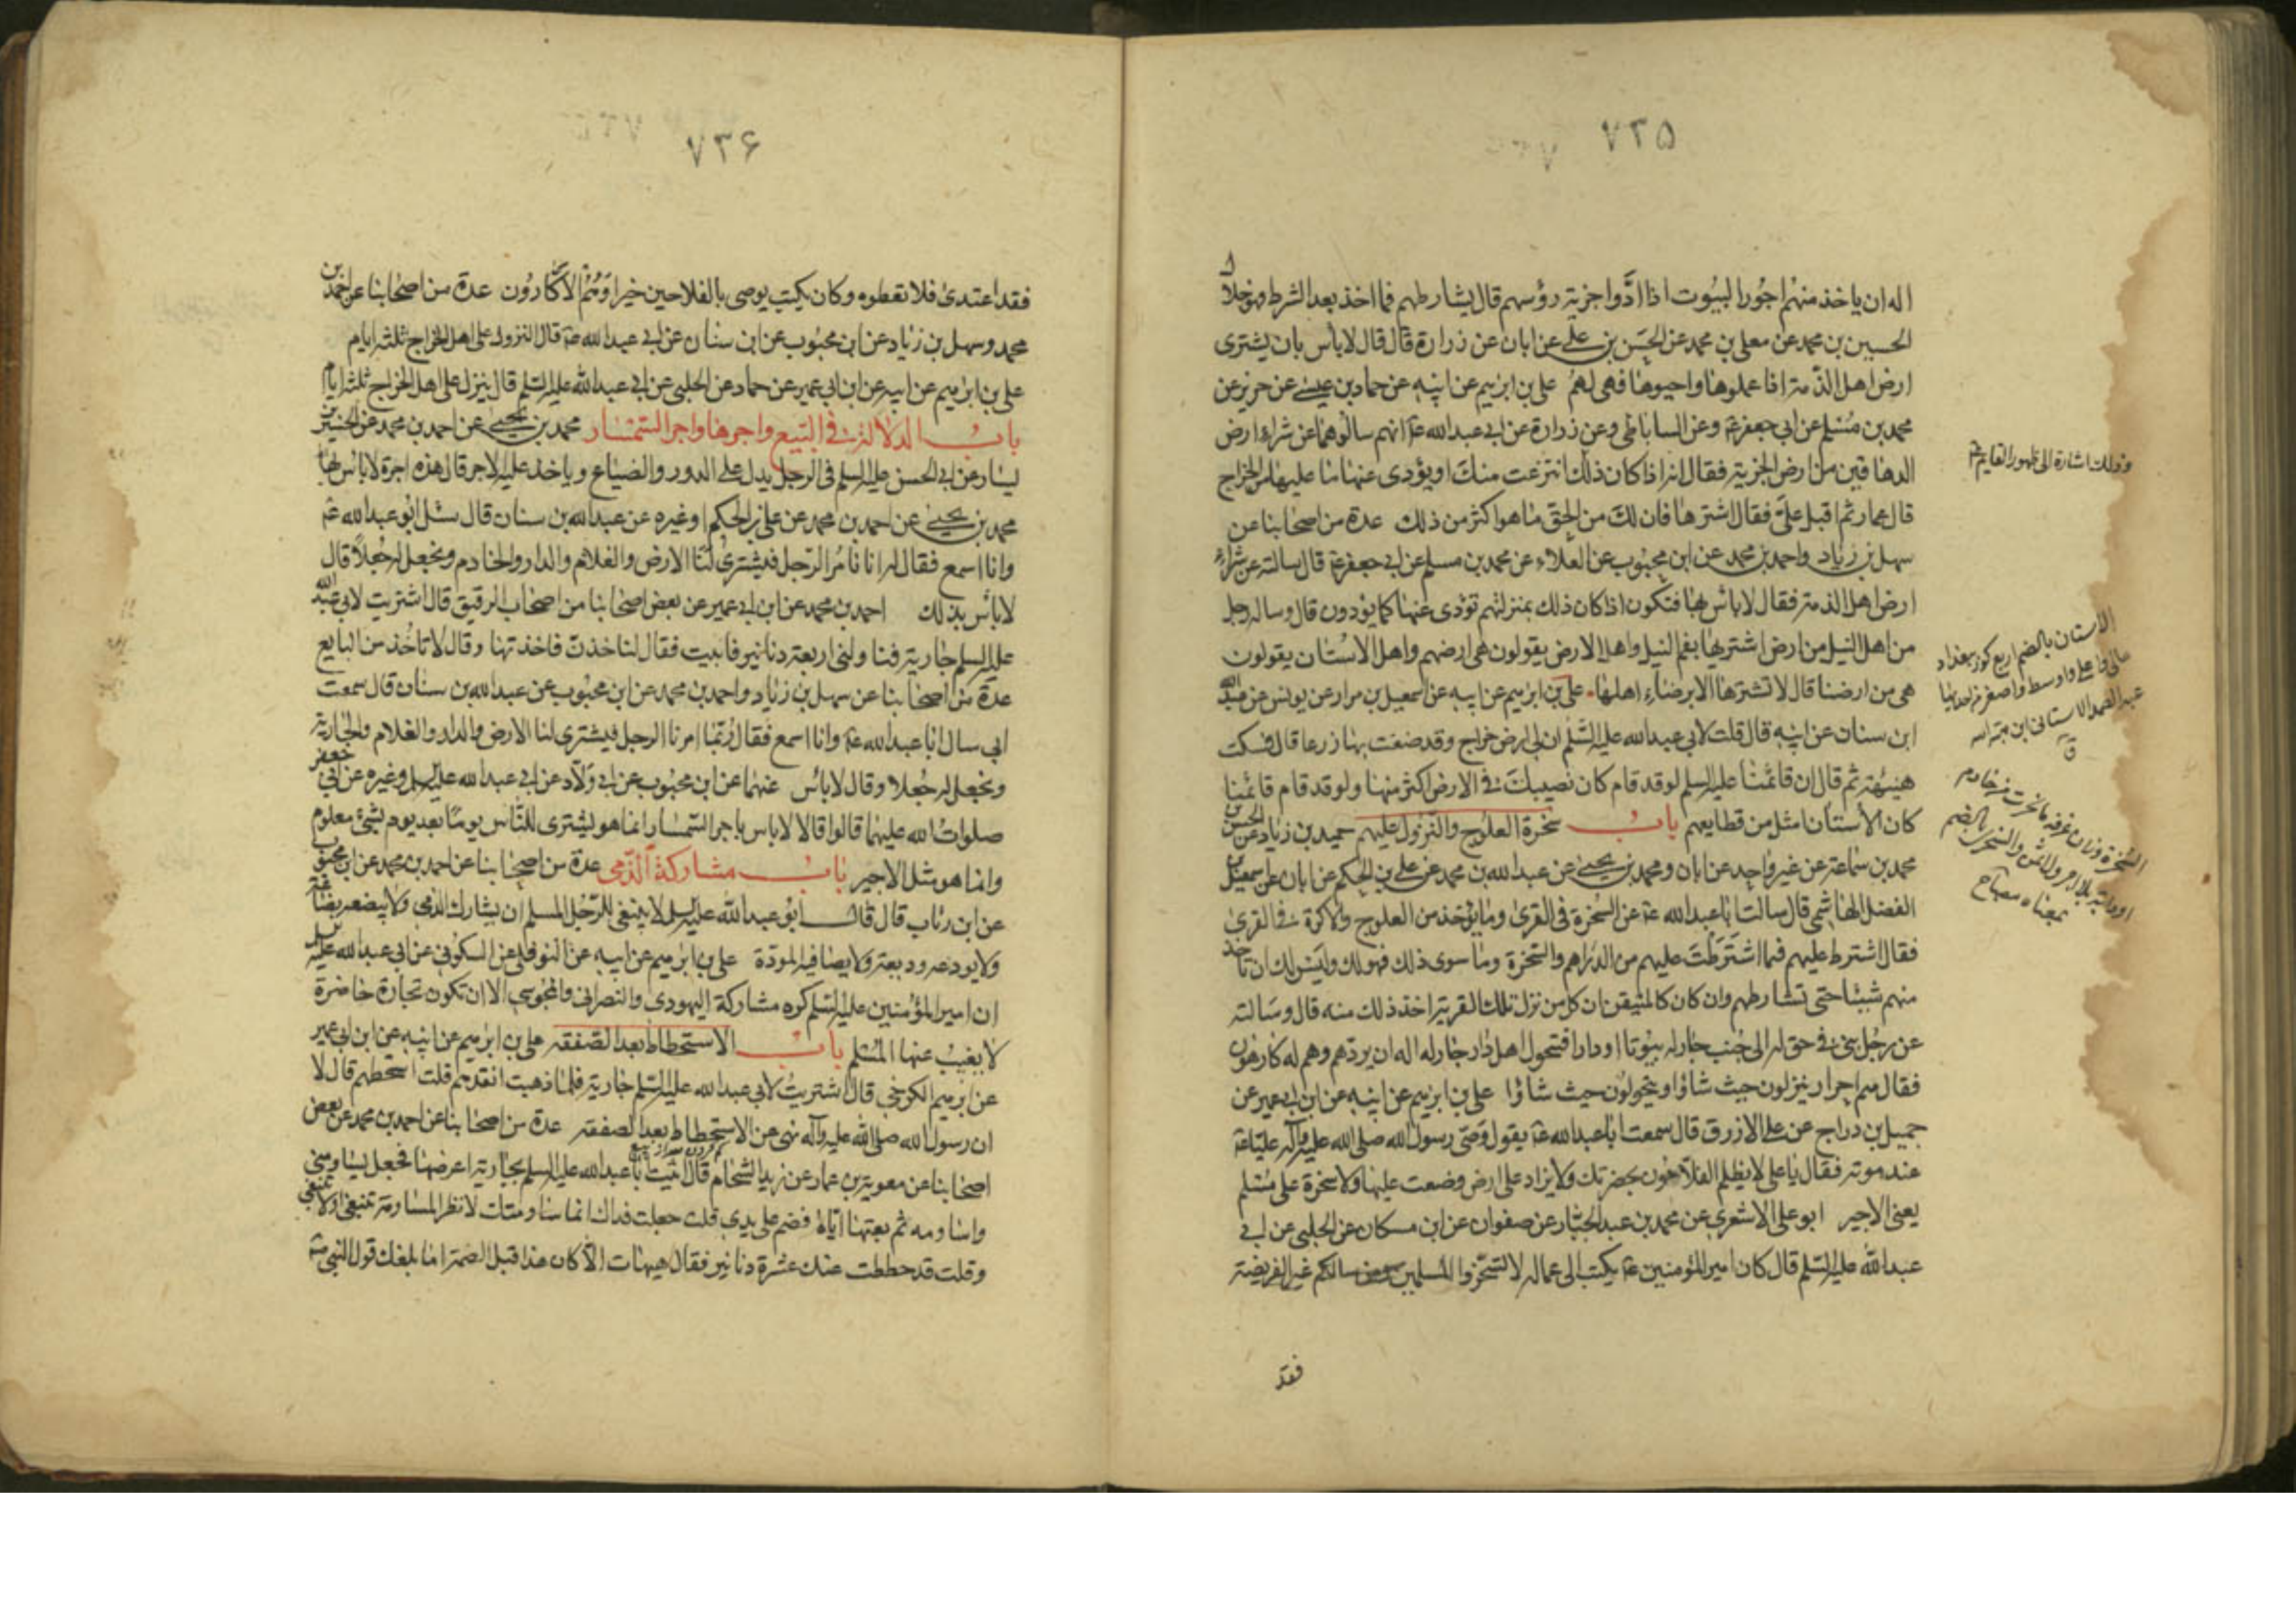 ٧٣٥
اله ان ياخذ منهم اجور البيوت اذا ادَّوا جزية رؤسهم قال يشارطهم فما اخذ بعد الشرط فهو حلال
الحسين بن محمد عن معلى بن محمد عن الحسن بن على عن ابان عن زرارة قال قال لا بأس بان يشترى
ارض اهل الذمة اذا عملوها واحيوها فهى لهم على بن ابرهيم عن ابيه عن حماد بن عيسى عن حريز عن
محمد بن مسلم عن ابى جعفر ع وعن الساباطى وعن زرارة عن ابى عبد الله ع انهم سالوهما عن شراء ارض
الدهاقين من ارض الجزية فقال انه اذا كان ذلك انتزعت منك او يؤدى عنها ما عليها من الخراج
قال عمار ثم اقبل علىّ فقال اشترها فان لك من الحق ما هو اكثر من ذلك عدة من اصحابنا عن
سهل بن زياد واحمد بن محمد عن ابن محبوب عن العلاء عن محمد بن مسلم عن ابى جعفر ع قال سالته عن شراء
ارض اهل الذمة فقال لا باس بها فتكون اذا كان ذلك بمنزلتهم تؤدى عنها كما يؤدون قال وساله رجل
من اهل النيل من ارض اشتريها بفم النيل واهل الارض يقولون هى ارضهم واهل الاستان يقولون
هى من ارضنا قال لا تشترها الا برضاء اهلها على بن ابرهيم عن ابيه عن اسمعيل بن مرار عن يونس عن عبد الله
ابن سنان عن ابيه قال قلت لابى عبد الله عليه السلم ان لى ارض خراج وقد ضقت بها ذرعا قال فسكت
هنيهة ثم قال ان قائمنا عليه السلم لو قد قام كان نصيبك فى الارض اكثر منها ولو قد قام قائمنا
كان الأستان امثل من قطايعهم باب سخرة العلوج والنزول عليهم حميد بن زياد عن الحسن بن
محمد بن سماعة عن غير واحد عن ابان ومحمد بن يحيى عن عبد الله بن محمد عن على بن الحكم عن ابان عن اسمعيل بن
الفضل الهاشمى قال سالت ابا عبد الله ع عن السخرة فى القرى وما يؤخذ من العلوج والاكرة فى القرى
فقال اشترط عليهم فما اشترطت عليهم من الدراهم والسخرة وما سوى ذلك فهو لك وليس لك ان تاخذ
منهم شيئا حتى تشارطهم وان كان كالمتيقن ان كل من نزل تلك القرية اخذ ذلك منه قال وسالته
عن رجل بنى فى حق له الى جنب جار له بيوتا او دارا فتحول اهل دار جار له اله ان يردهم وهم له كارهون
فقال هم احرار ينزلون حيث شاؤا ويتحولون حيث شاؤا على بن ابرهيم عن ابيه عن ابن ابى عمير عن
جميل بن دراج عن على الازرق قال سمعت ابا عبد الله ع يقول وصّى رسول الله صلى الله عليه وآله عليا ع
عند موته فقال يا على لا يظلم الفلاحون بحضرتك ولا يزاد على ارض وضعت عليها ولا سخرة على مسلم
يعنى الاجير ابو على الاشعرى عن محمد بن عبد الجبار عن صفوان عن ابن مسكان عن الحلبى عن ابى
عبد الله عليه السلم قال كان امير المؤمنين ع يكتب الى عماله لا تسخروا المسلمين ومن سالكم غير الفريضة
فقد
وذلك اشارة الى ظهور القايم ع
الاستان بالضم اربع كور ببغداد
عالى واعلى واوسط واصغر من احديها
عبد الصمد الاستانى ابن هبة الله
ق
السخرة وزان غرفة ما سخرت من خادم
او دابة بلا اجر ولا ثمن والسخرى بالضم
بمعناه مصباح
٧٣۶
فقد اعتدى فلا تعطوه وكان يكتب يوصى بالفلاحين خيرا وهم الاكّارون عدة من اصحابنا عن احمد بن
محمد وسهل بن زياد عن ابن محبوب عن ابن سنان عن ابى عبد الله ع قال النزول على اهل الخراج ثلثة ايام
على بن ابرهيم عن ابيه عن ابن ابى عمير عن حماد عن الحلبى عن ابى عبد الله عليه السلم قال ينزل على اهل الخراج ثلثة ايام
باب الدلالة فى البيع واجرها واجر السمسار محمد بن يحيى عن احمد بن محمد عن الحسين بن
يسار عن ابى الحسن عليه السلم فى الرجل يدل على الدور والضياع وياخذ عليه الاجر قال هذه اجرة لا باس بها
محمد بن يحيى عن احمد بن محمد عن على بن الحكم او غيره عن عبد الله بن سنان قال سئل ابو عبد الله ع
وانا اسمع فقال له انا نامر الرجل فيشترى لنا الارض والغلام والدار والخادم ونجعل له جعلا قال
لا بأس بذلك احمد بن محمد عن ابن ابى عمير عن بعض اصحابنا من اصحاب الرقيق قال اشتريت لابى عبد الله
عليه السلم جارية فناولنى اربعة دنانير فابيت فقال لتاخذن فاخذتها وقال لا تاخذ من البايع
عدة من اصحابنا عن سهل بن زياد واحمد بن محمد عن ابن محبوب عن عبد الله بن سنان قال سمعت
ابى سال ابا عبد الله ع وانا اسمع فقال ربّما امرنا الرجل فيشترى لنا الارض والدار والغلام والجارية
ونجعل له جعلا وقال لا باس عنهما عن ابن محبوب عن ابى ولاّد عن ابى عبد الله عليه السلم وغيره عن ابى جعفر
صلوات الله عليهما قالوا قالا لا باس باجر السمسار انما هو يشترى للناس يوما بعد يوم بشئ معلوم
وانما هو مثل الاجير باب مشاركة الذمى عدة من اصحابنا عن احمد بن محمد عن ابن محبوب
عن ابن رئاب قال قال ابو عبد الله عليه السلم لا ينبغى للرجل المسلم ان يشارك الذمى ولا يبضعه بضاعة
ولا يودعه وديعة ولا يصافيه المودة على بن ابرهيم عن ابيه عن النوفلى عن السكونى عن ابى عبد الله عليه السلم
ان امير المؤمنين عليه السلم كره مشاركة اليهودى والنصرانى والمجوسى الا ان تكون تجارة حاضرة
لا يغيب عنها المسلم باب الاستحطاط بعد الصفقة على بن ابرهيم عن ابيه عن ابن ابى عمير
عن ابرهيم الكرخى قال اشتريت لابى عبد الله عليه السلم جارية فلما ذهبت انقدهم قلت استحطهم قال لا
ان رسول الله صلى الله عليه وآله نهى عن الاستحطاط بعد الصفقة عدة من اصحابنا عن احمد بن محمد عن بعض
اصحابنا عن معوية بن عمار عن زيد الشحام قال اتيت ابا عبد الله عليه السلم بجارية اعرضها فجعل يساومنى
واساومه ثم بعتها اياه فضم على يدى قلت جعلت فداك انما ساومتك لانظر المساومة تنبغى او لا تنبغى
وقلت قد حططت عنك عشرة دنانير فقال هيهات الا كان هذا قبل الضمة اما بلغك قول النبى ص